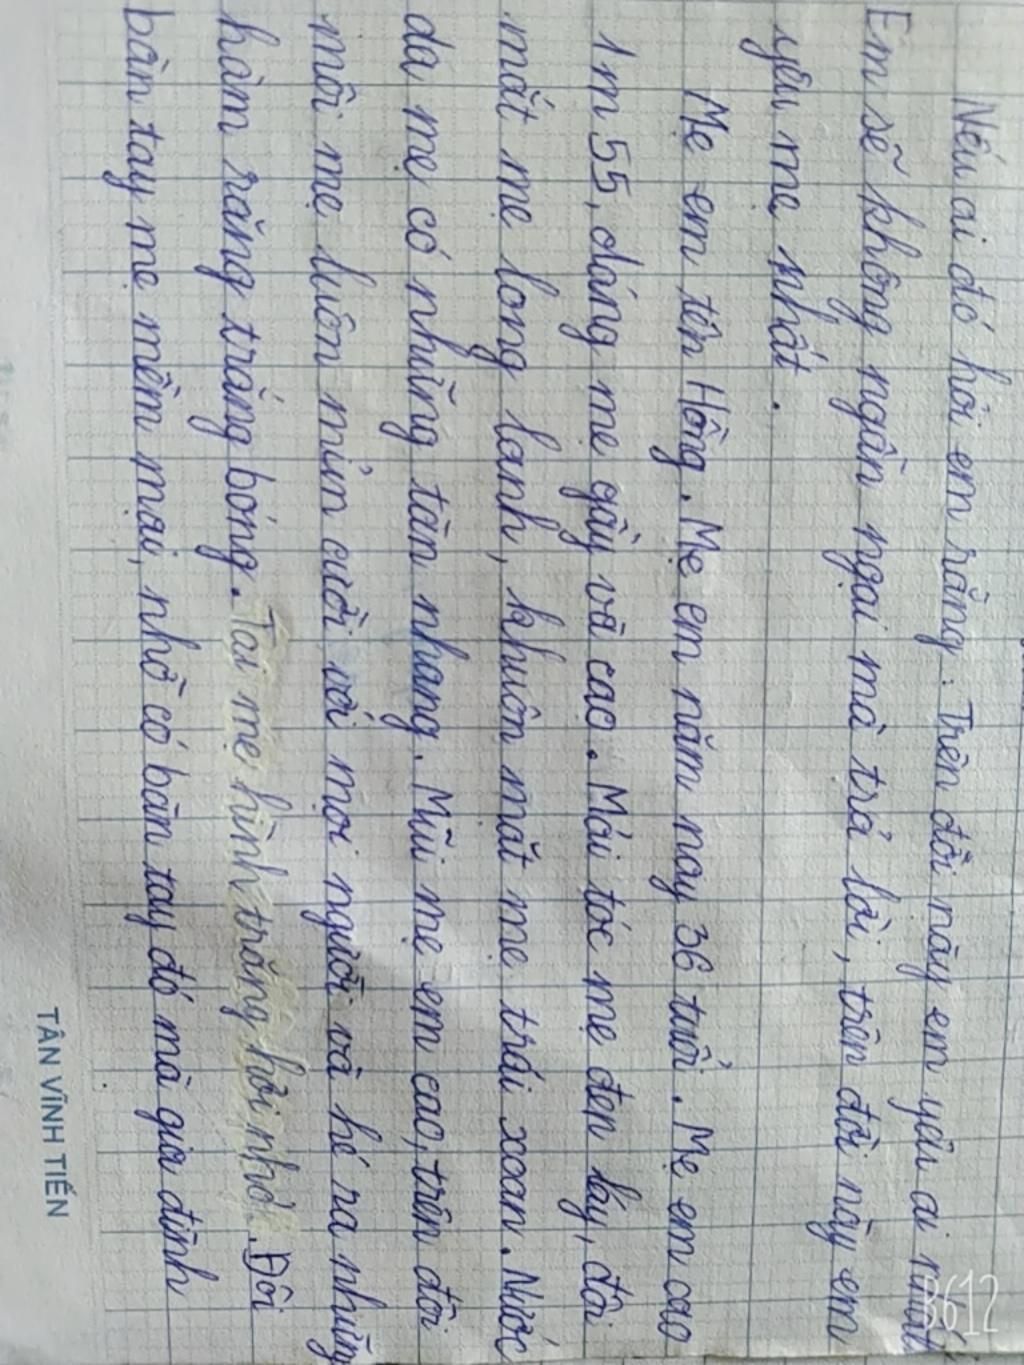 Nếu ai đó hỏi em rằng. Trên đời này em yêu ai nhất
Em sẽ không ngần ngại mà trả lời, trên đời này em
yêu mẹ nhất.
Mẹ em tên Hồng. Mẹ em năm nay 36 tuổi. Mẹ em cao
1m 55, dáng mẹ gầy và cao. Mái tóc mẹ đen láy, đôi
mắt mẹ long lanh, khuôn mặt mẹ trái xoan. Nước
da mẹ có những tàn nhang. Mũi mẹ em cao, trên đôi
môi mẹ luôn mỉm cười với mọi người và hé ra những
hàm răng trắng bóng. Tai mẹ hình trăng hơi nhỏ. Đôi
bàn tay mẹ mềm mại, nhờ có bàn tay đó mà gia đình
TÂN VĨNH TIẾN
B612